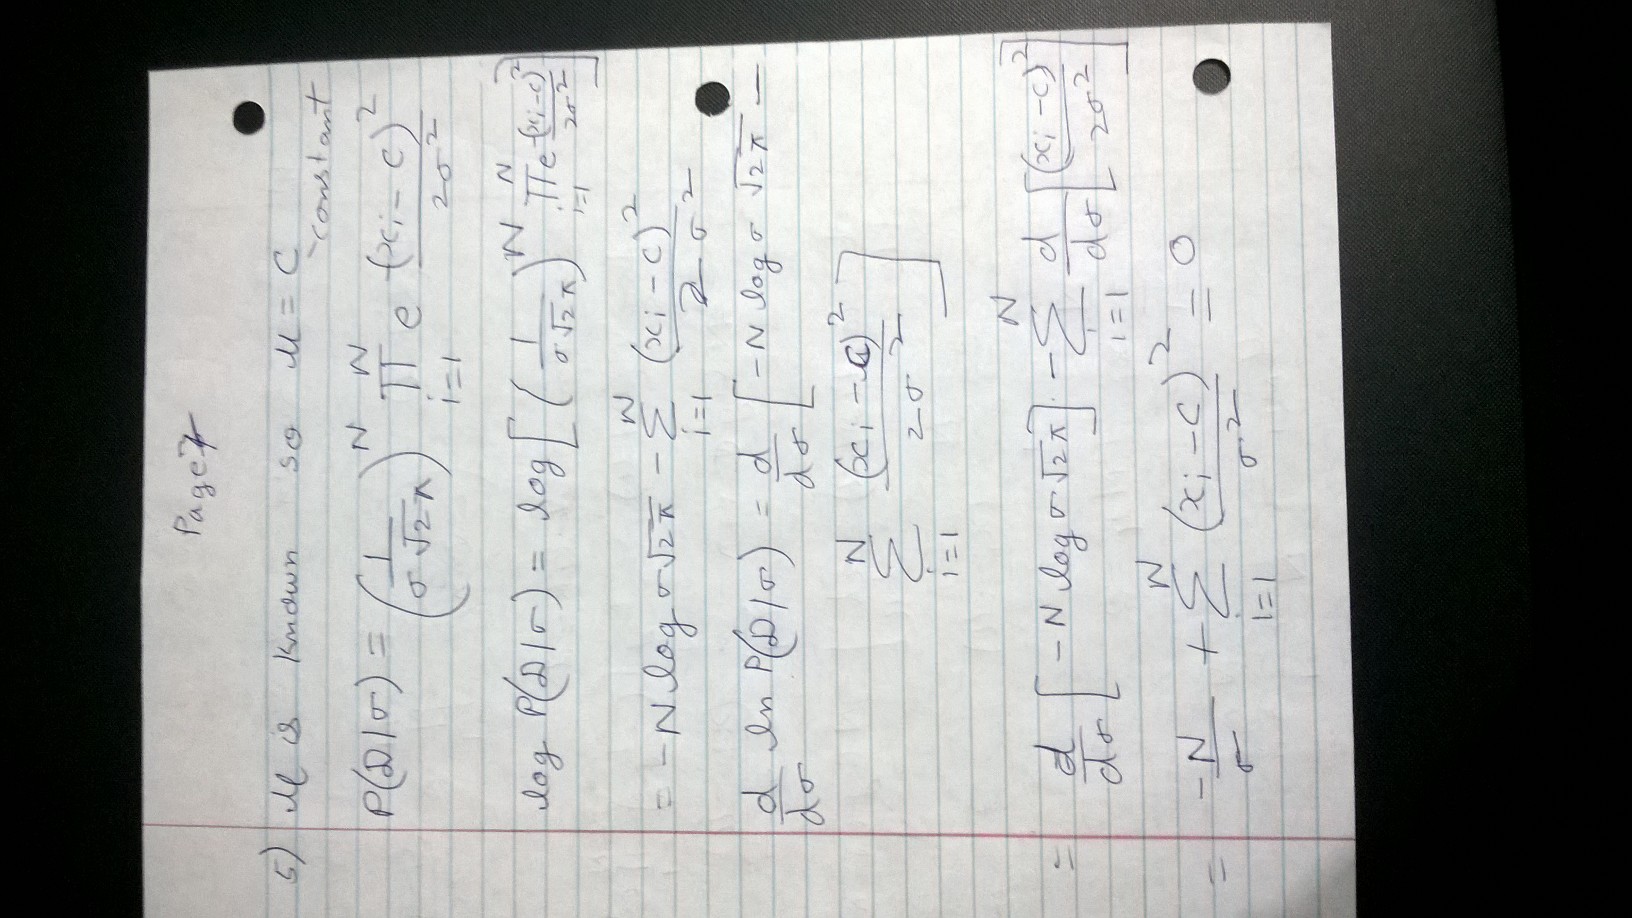 Page 7
5) M is known so M = C
constant
P(D|σ) = (1/(σ√2π))^N ∏_{i=1}^{N} e^{-(x_i - c)^2/(2σ^2)}
log P(D|σ) = log [ (1/(σ√2π))^N ∏_{i=1}^{N} e^{-(x_i - c)^2/(2σ^2)} ]
= - N log σ√2π - ∑_{i=1}^{N} (x_i - c)^2/(2σ^2)
d/dσ ln P(D|σ) = d/dσ [ - N log σ √2π -
∑_{i=1}^{N} (x_i - c)^2/(2σ^2) ]
= d/dσ [ - N log σ√2π ] - ∑_{i=1}^{N} d/dσ [ (x_i - c)^2/(2σ^2) ]
= -N/σ + ∑_{i=1}^{N} (x_i - c)^2/σ^2 = 0